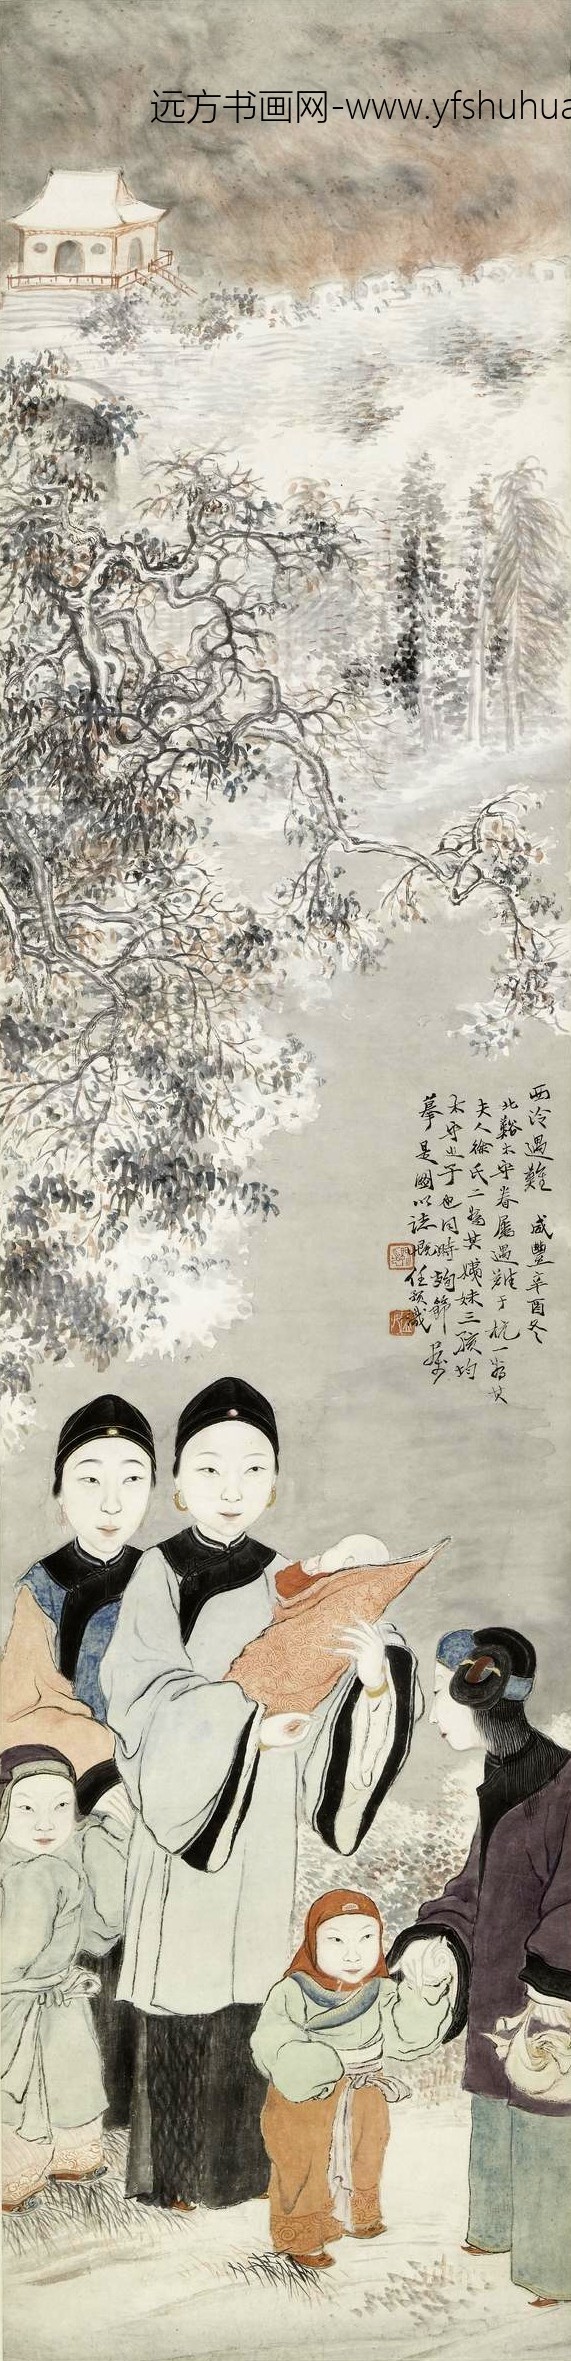 远方书画网-www.yfshuhua
西泠遇難 咸豐辛酉冬
北谿太守眷屬遇難于杭一為其
夫人徐氏二為其姨妹三孩均
太守之子也同時殉節 屬
摹是圖以誌慨 任頤識